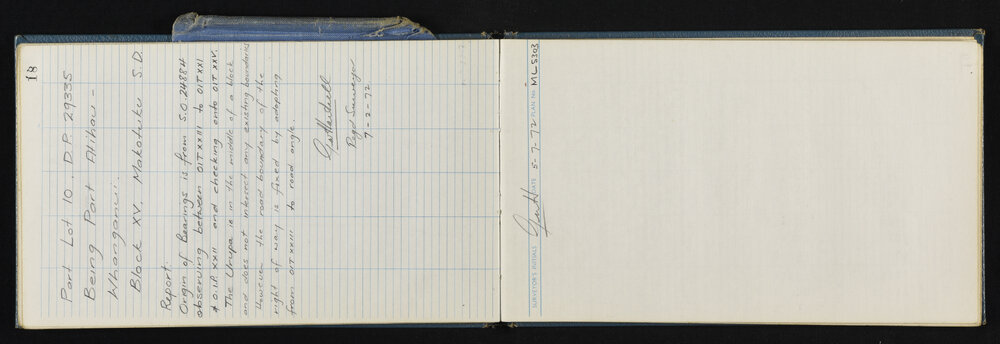 18
Part Lot 10. D.P. 29335
Being Part Atihau -
Whanganui.
Block XV, Makotuku S.D.
Report.
Origin of Bearings is from S.O. 24884
observing between OIT XXIII to OIT XXI
& O.I.P. XXII and checking onto OIT XXV.
The Urupa is in the middle of a block
and does not intersect any existing boundaries
However the road boundary of the
right of way is fixed by adopting
from OIT XXIII to road angle.
Regd Surveyor
7-2-72
SURVEYOR'S INITIALS DATE 5-7-72 PLAN No. ML5303